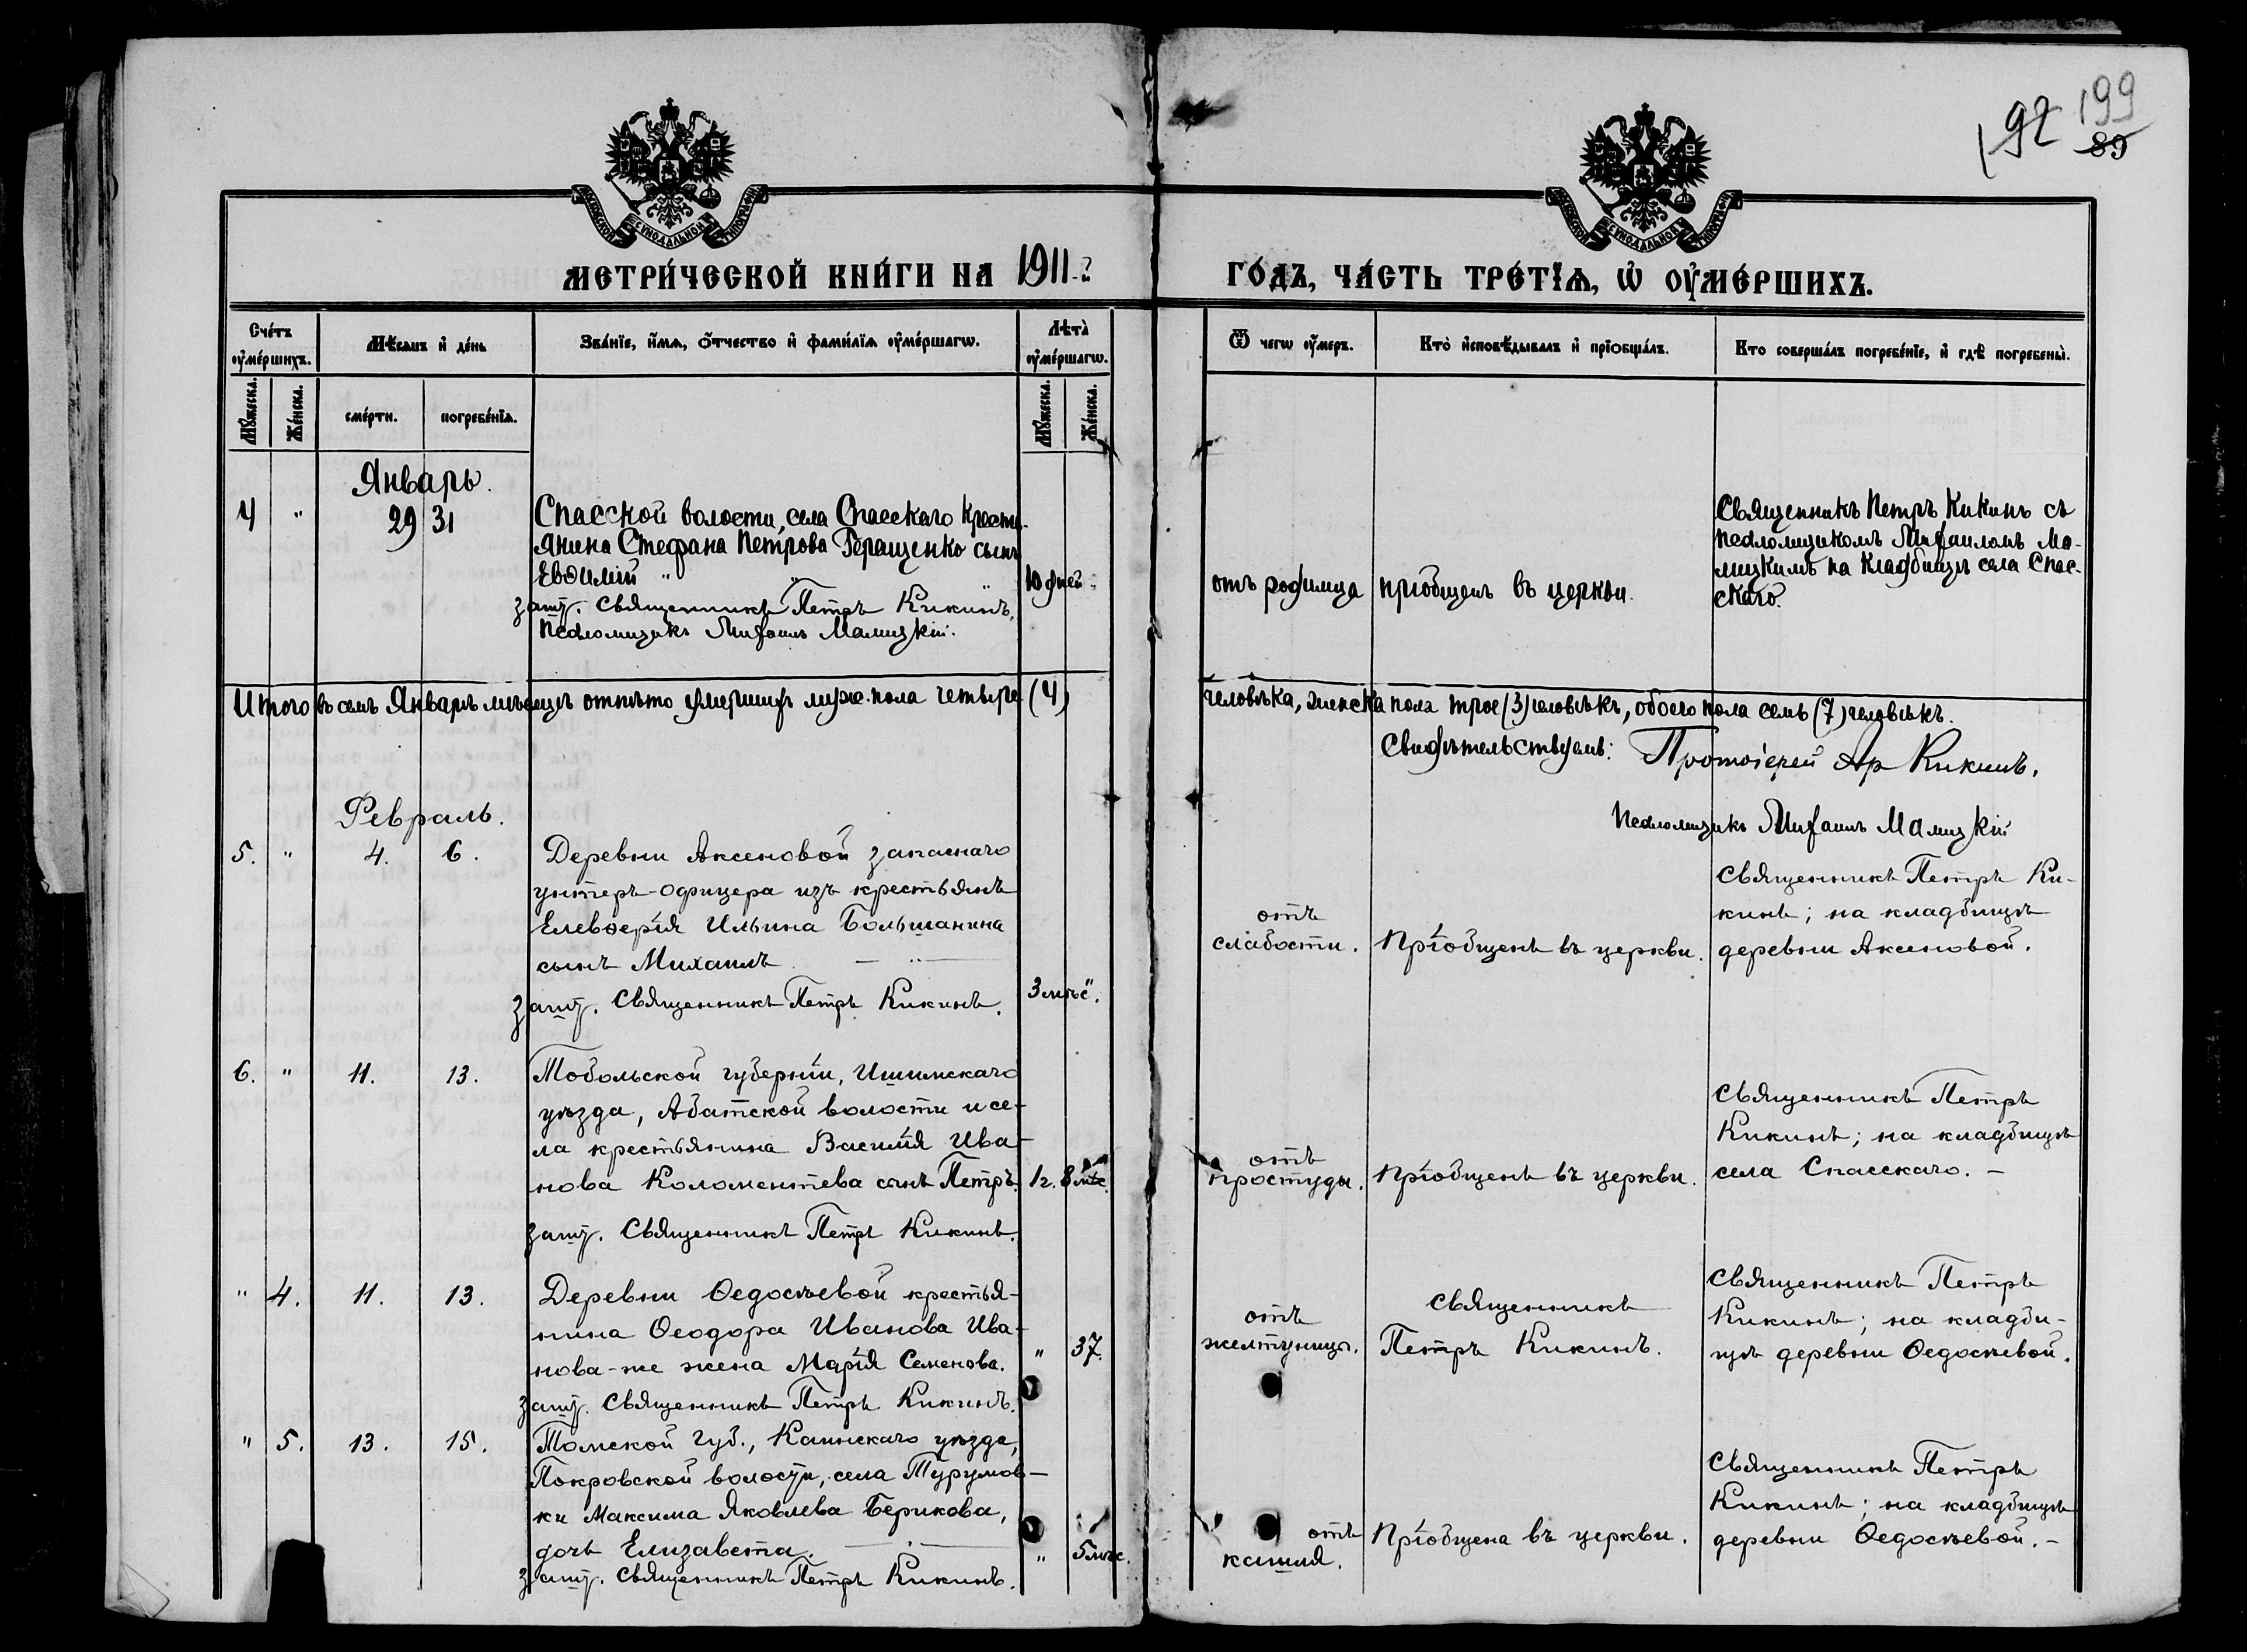 192 199
89
МОСКОВСКОЙ СѴНОДАЛЬНОЙ ТИПОГРАФІИ
МОСКОВСКОЙ СѴНОДАЛЬНОЙ ТИПОГРАФІИ
МЕТРИ́ЧЕСКОЙ КНИ́ГИ НА 1911 ГО́ДЪ, ЧА́СТЬ ТРЕ́ТІѦ, Ѡ҆ ОУ҆МЕ́РШИХЪ.
Сче́тъ оу҆ме́ршихъ.
Мѣ́сѧцъ и҆ де́нь
Зва́нїе, и҆́мѧ, ѻ҆́тчество и҆ фами́лїѧ оу҆ме́ршагѡ.
Лѣта̀ оу҆ме́ршагѡ.
Ѿ чегѡ̀ оу҆́меръ.
Кто̀ и҆сповѣ́дывалъ и҆ прїобща́лъ.
Кто̀ соверша́лъ погребе́нїе, и҆ гдѣ̀ погребены̀.
Мꙋ́жеска. Же́нска. сме́рти. погребе́нїѧ. Мꙋ́жеска. Же́нска.
Январь.
4 " 29 31 Спасской волости, села Спасскаго Крестья-
янина Стефана Петрова Геращенко сынъ
Евѳимій " " "
10 дней "
запис. Священникъ Петръ Кикинъ,
Псаломщикъ Михаилъ Мамицкій.
отъ родимца
пріобщенъ въ церкви.
Священникъ Петръ Кикинъ съ
псаломщикомъ Михаиломъ Ма-
мицкимъ на кладбищѣ села Спас-
скаго.
Итого въ семъ Январѣ мѣсяцѣ отпѣто умершихъ муж. пола четыре (4) человѣка, женска пола трое (3) человѣкъ, обоего пола семь (7) человѣкъ.
Свидѣтельствуемъ: Протоіерей Ар Кикинъ.
Псаломщикъ Михаилъ Мамицкій
Февраль.
5. " 4. 6. Деревни Аксеновой запаснаго
унтеръ-офицера изъ крестьянъ
Елевѳерія Ильина Большанина
сынъ Михаилъ — " —
3 мѣс. "
запис. Священникъ Петръ Кикинъ.
отъ
слабости.
Пріобщенъ въ церкви.
Священникъ Петръ Ки-
кинъ; на кладбищѣ
деревни Аксеновой.
6. " 11. 13. Тобольской губерніи, Ишимскаго
уѣзда, Абатской волости и се-
ла крестьянина Василія Ива-
нова Коломентева сынъ Петръ.
1 г. 8 мѣс.
запис. Священникъ Петръ Кикинъ.
отъ
простуды.
Пріобщенъ въ церкви.
Священникъ Петръ
Кикинъ; на кладбищѣ
села Спасскаго. —
" 4. 11. 13. Деревни Ѳедосѣевой крестья-
нина Ѳеодора Иванова Ива-
нова-же жена Марія Семенова.
" 37.
запис. Священникъ Петръ Кикинъ.
отъ
желтуницы.
Священникъ
Петръ Кикинъ.
Священникъ Петръ
Кикинъ; на кладби-
щѣ деревни Ѳедосѣевой.
" 5. 13. 15. Томской губ., Каинскаго уѣзда,
Покровской волости, села Турумов-
ки Максима Яковлева Берикова,
дочь Елизавета. — " —
" 5 мѣс.
запис. Священникъ Петръ Кикинъ.
отъ
кашля.
Пріобщена въ церкви.
Священникъ Петръ
Кикинъ; на кладбищѣ
деревни Ѳедосѣевой. —